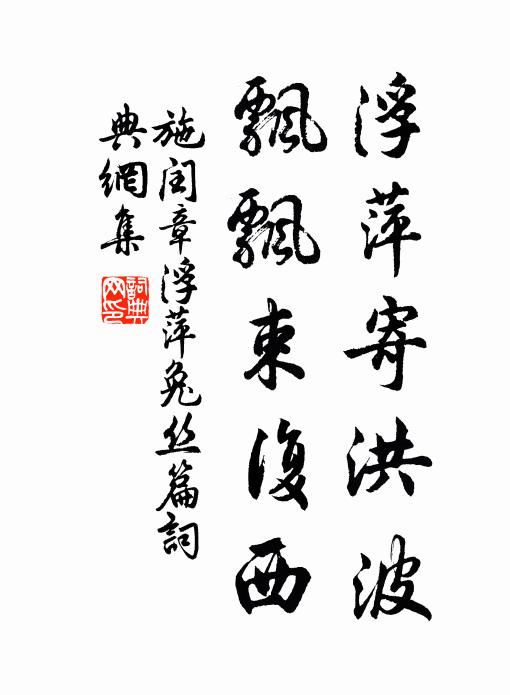 浮萍寄洪波
飄飄東復西
施閏章浮萍兔丝篇詞
典網集
詞典
网印